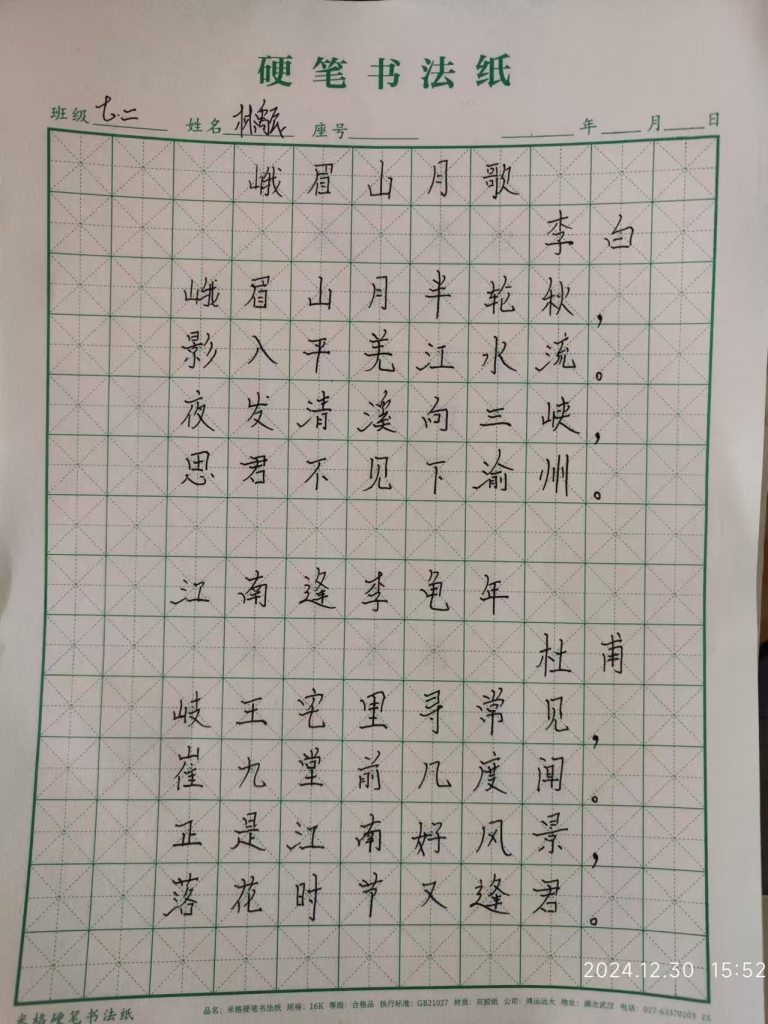 硬笔书法纸
班级 七.二 姓名 座号 年 月 日
峨眉山月歌
李白
峨眉山月半轮秋，
影入平羌江水流。
夜发清溪向三峡，
思君不见下渝州。
江南逢李龟年
杜甫
岐王宅里寻常见，
崔九堂前几度闻。
正是江南好风景，
落花时节又逢君。
2024.12.30 15:52
米格硬笔书法纸 品名：米格硬笔书法纸 规格：16K 等级：合格品 执行标准：GB21027 材质：双胶纸 公司：鸿运远大 地址：湖北武汉 电话：027-63370203